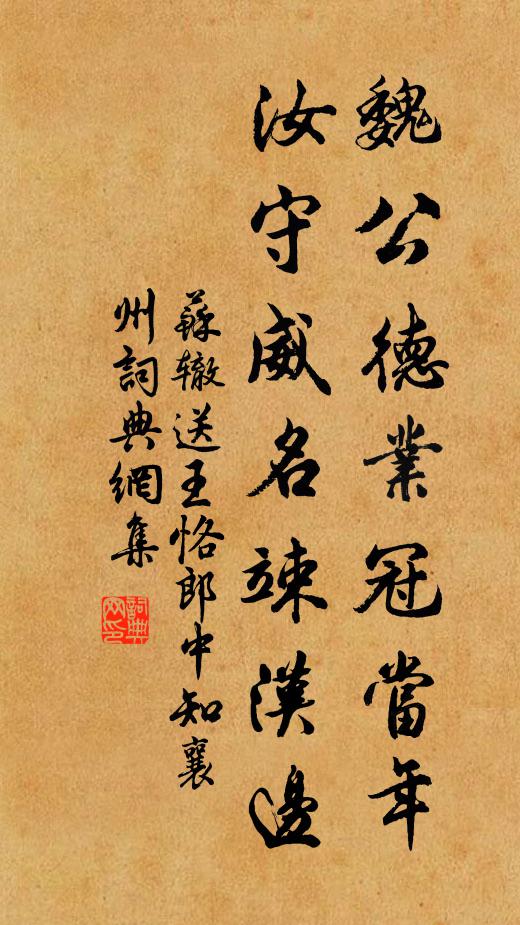 魏公德業冠當年
汝守威名竦漢邊
蘇轍送王恪郎中知襄
州詞典網集
詞典
网印